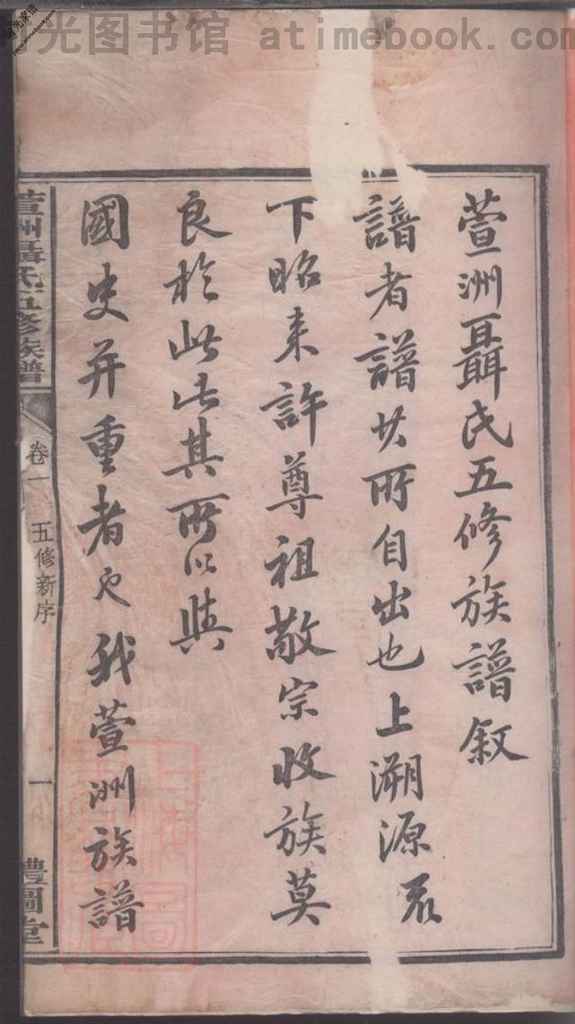 光图书馆 atimebook.com
萱洲聶氏五修族譜叙
譜者譜其所自出也上溯源
下昭来許尊祖敬宗收族莫
良於此此其所以與
國史并重者也我萱洲族譜
萱洲聶氏五修族譜
卷一
五修新序
一
禮堂